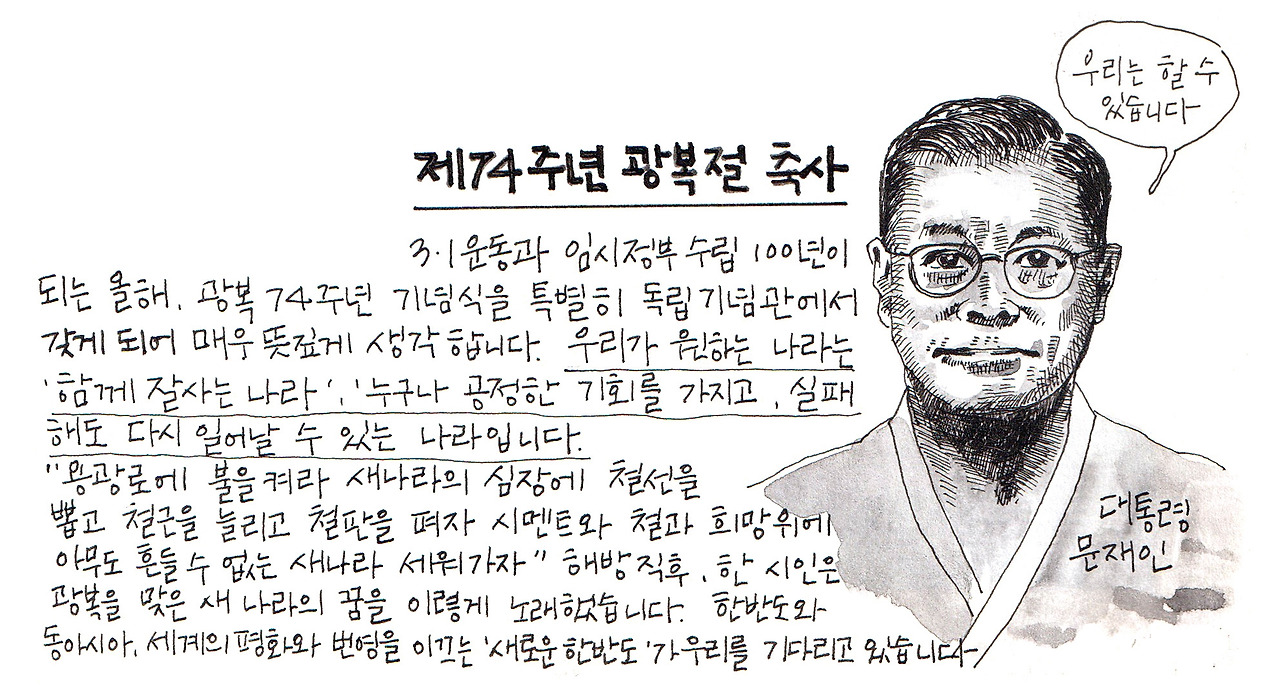 우리는 할 수
있습니다
제74주년 광복절 축사
3·1운동과 임시정부 수립 100년이
되는 올해, 광복 74주년 기념식을 특별히 독립기념관에서
갖게 되어 매우 뜻깊게 생각합니다. 우리가 원하는 나라는
'함께 잘사는 나라', '누구나 공정한 기회를 가지고, 실패
해도 다시 일어날 수 있는 나라입니다.
"용광로에 불을 켜라 새나라의 심장에 철선을
뽑고 철근을 늘리고 철판을 펴자 시멘트와 철과 희망위에
아무도 흔들 수 없는 새나라 세워가자" 해방직후, 한 시인은
광복을 맞은 새 나라의 꿈을 이렇게 노래했습니다. 한반도와
동아시아, 세계의 평화와 번영을 이끄는 '새로운 한반도'가 우리를 기다리고 있습니다
대통령
문재인